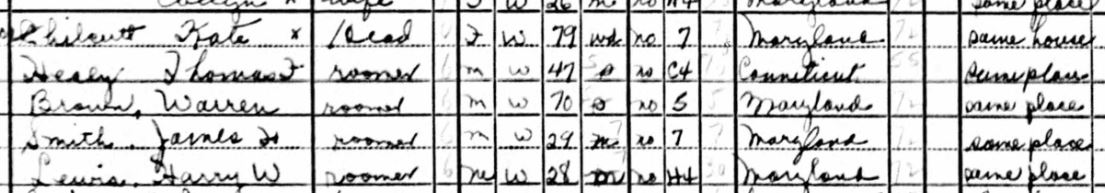 wife W 26 m no H4 Maryland same place
Chilcutt Kate x Head F W 79 wd no 7 Maryland same house
Healy Thomas F roomer m W 47 s no C4 Conneticut same place
Brown, Warren roomer m W 70 s no 5 Maryland same place
Smith, James H roomer m W 29 m no 7 Maryland same place
Lewis, Harry W roomer m W 28 m no H4 Maryland same place